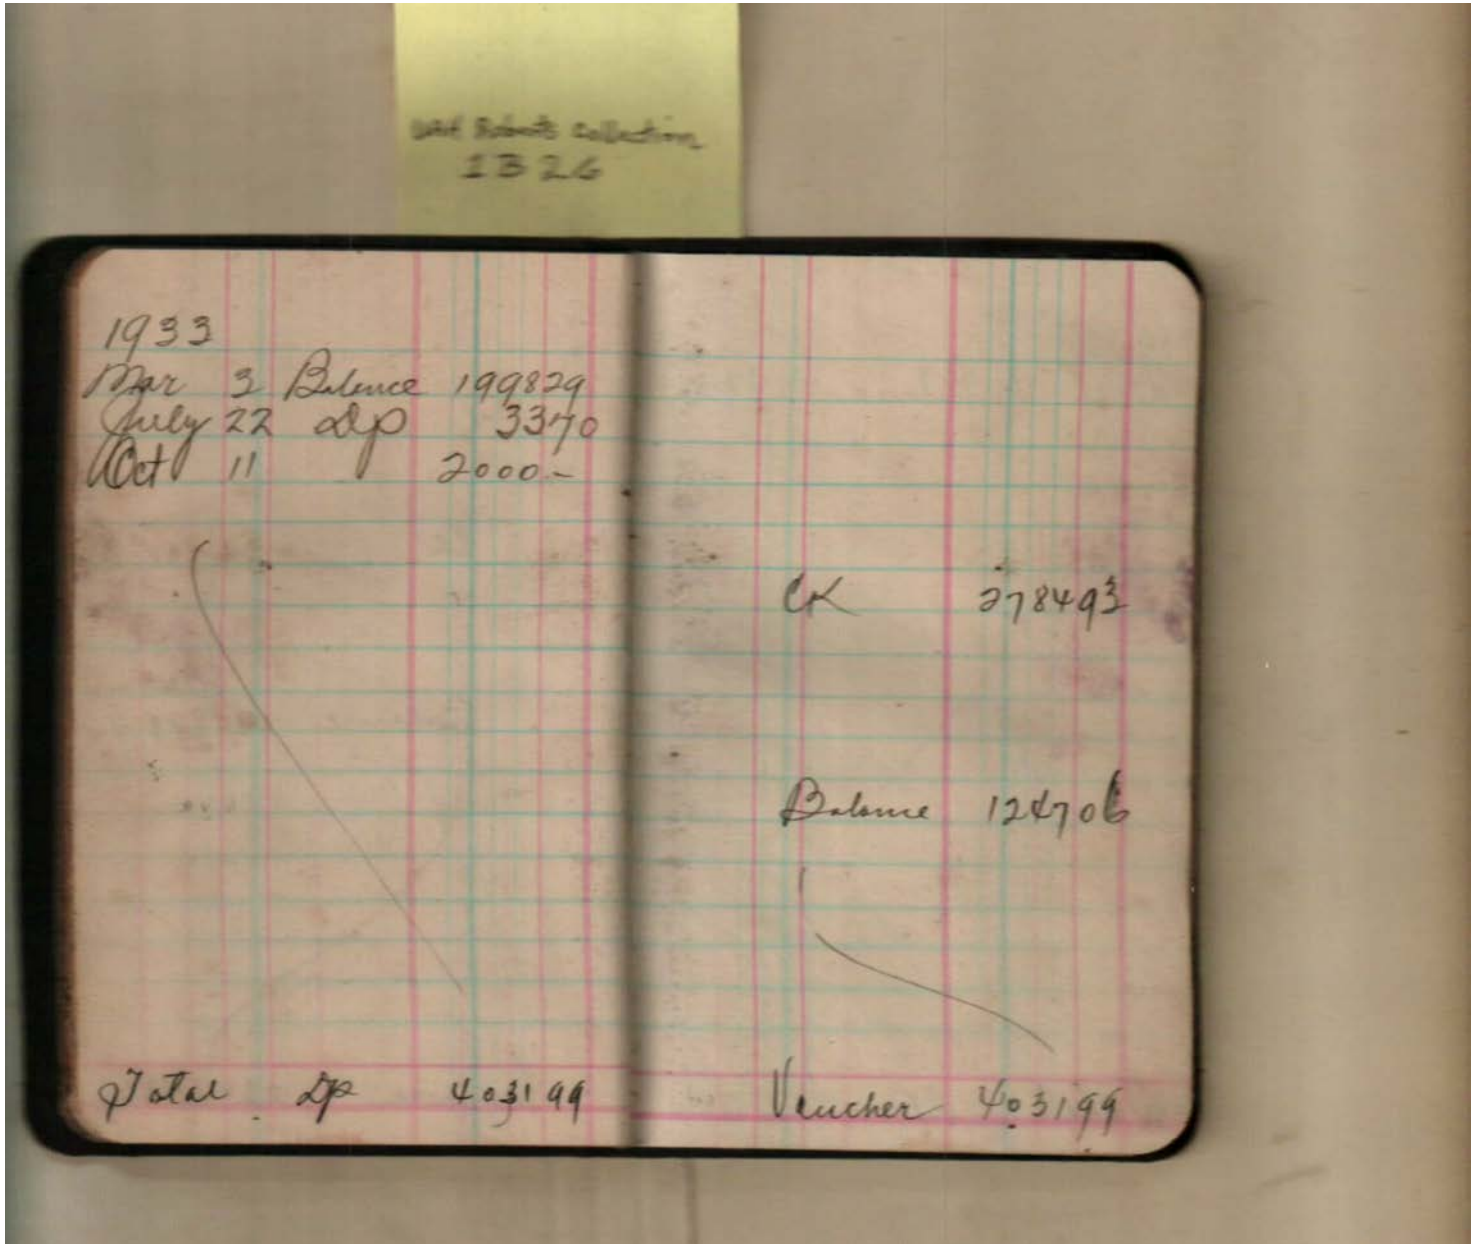 UAH Roberts Collection
1B26
1933
Mar 3 Balance 199829
July 22 Dp 3370
Oct 11 2000 -
Total Dp 403199
CK 278493
Balance 124706
Voucher 403199